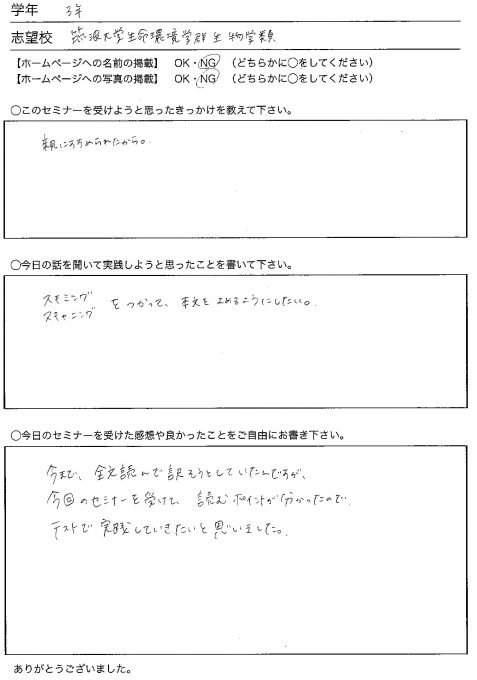 学年 3年
志望校 筑波大学生命環境学群生物学類
【ホームページへの名前の掲載】 OK・NG （どちらかに○をしてください）
【ホームページへの写真の掲載】 OK・NG （どちらかに○をしてください）
○このセミナーを受けようと思ったきっかけを教えて下さい。
親にすすめられたから。
○今日の話を聞いて実践しようと思ったことを書いて下さい。
スキミング
スキャニング をつかって、本文をよめるようにしたい。
○今日のセミナーを受けた感想や良かったことをご自由にお書き下さい。
今まで、全文読んで訳そうとしていたんですが、
今回のセミナーを受けて、読むポイントが分かったので
テストで実践していきたいと思いました。
ありがとうございました。